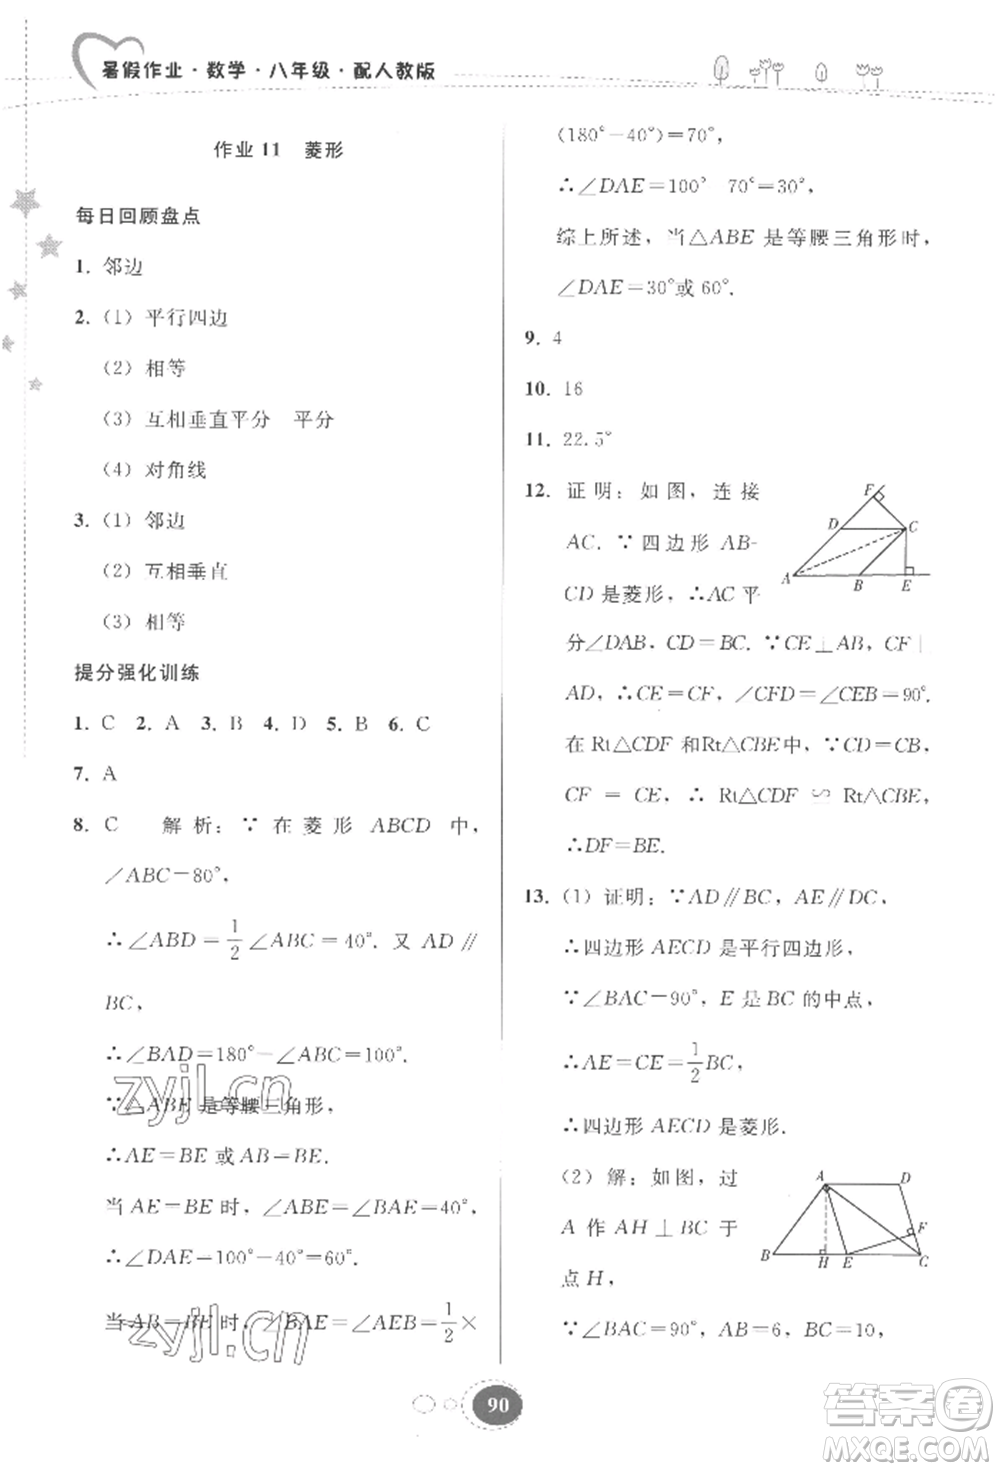 暑假作业·数学·八年级·配人教版
作业 11 菱形
每日回顾盘点
1. 邻边
2. (1) 平行四边
(2) 相等
(3) 互相垂直平分 平分
(4) 对角线
3. (1) 邻边
(2) 互相垂直
(3) 相等
提分强化训练
1. C 2. A 3. B 4. D 5. B 6. C
7. A
8. C 解析: ∵ 在菱形 ABCD 中,
∠ABC=80°,
∴∠ABD=1/2∠ABC=40°. 又 AD∥
BC,
∴∠BAD=180°-∠ABC=100°.
∵△ABE 是等腰三角形,
∴AE=BE 或 AB=BE.
当 AE=BE 时, ∠ABE=∠BAE=40°,
∴∠DAE=100°-40°=60°;
当 AB=BE 时, ∠BAE=∠AEB=1/2×
(180°-40°)=70°,
∴∠DAE=100° 70°=30°,
综上所述, 当△ABE 是等腰三角形时,
∠DAE=30°或 60°.
9. 4
10. 16
11. 22.5°
12. 证明: 如图, 连接
AC. ∵四边形 AB-
CD 是菱形, ∴AC 平
分∠DAB, CD=BC. ∵CE⊥AB, CF⊥
AD, ∴CE=CF, ∠CFD=∠CEB=90°.
在 Rt△CDF 和Rt△CBE中, ∵CD=CB,
CF = CE, ∴ Rt△CDF ≌ Rt△CBE,
∴DF=BE.
F
D
C
A
B
E
13. (1) 证明: ∵AD∥BC, AE∥DC,
∴四边形 AECD 是平行四边形,
∵∠BAC=90°, E 是 BC 的中点,
∴AE=CE=1/2BC,
∴四边形 AECD 是菱形.
(2) 解: 如图, 过
A 作 AH⊥BC 于
点 H,
∵∠BAC=90°, AB=6, BC=10,
A
D
F
B
H
E
C
90
zyjl.cn
zyjl.cn
答案圈
MXQE.COM